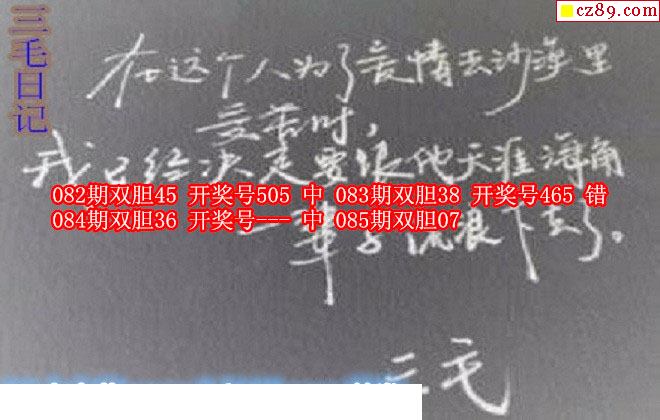 cz89.com
三毛日记
在这个人为了爱情去沙漠里
受苦时，
我已经决定要跟他天涯海角
082期双胆45 开奖号505 中 083期双胆38 开奖号465 错
084期双胆36 开奖号--- 中 085期双胆07
一辈子流浪下去了。
三毛